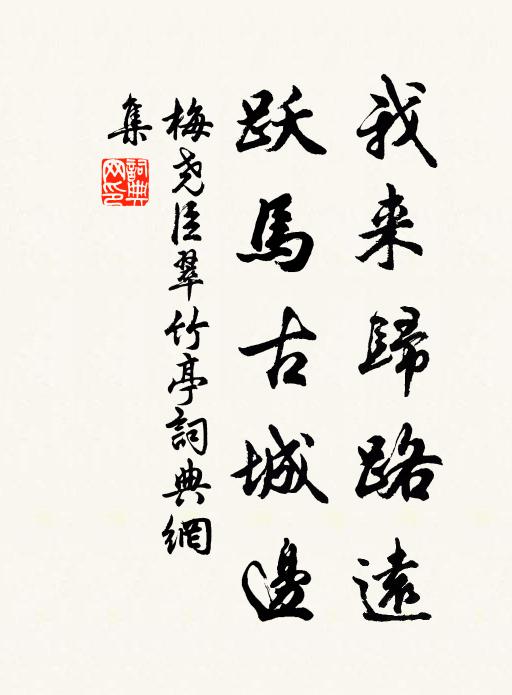 我来歸路遠
跃馬古城邊
梅尧臣翠竹亭詞典網
集
詞典网印